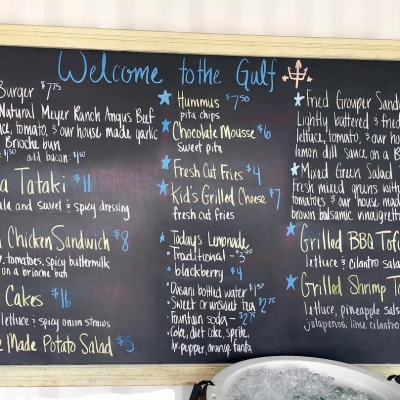 Welcome to the Gulf
Burger $7.75
Natural Meyer Ranch Angus Beef
tomato, & our house made garlic
Brioche bun
add bacon: $1.50
Tataki $11
and sweet & spicy dressing
Chicken Sandwich $8
tomatoes, spicy buttermilk
on a brioche bun
Cakes $16
lettuce & spicy onion straws
Made Potato Salad $5
Hummus $7.50
pita chips
Chocolate Mousse $6
Sweet pita
Fresh Cut Fries $4
Kid's Grilled Cheese $7
fresh cut fries
Todays Lemonade
- Traditional -
- blackberry $4
Dasani bottled water $1.50
Sweet or unsweet tea $2.75
Fountain soda - $2.75
Coke, diet coke, sprite,
dr. pepper, orange fanta
Fried Grouper Sand
Lightly battered & fried
lettuce, tomato, & our ho
lemon dill sauce on a B
Mixed Green Salad
Fresh mixed greens with
tomatoes & our house mad
brown balsamic vinaigrett
Grilled BBQ Tof
lettuce & cilantro sala
Grilled Shrimp Ta
lettuce, pineapple sals
jalapenos, lime cilantro